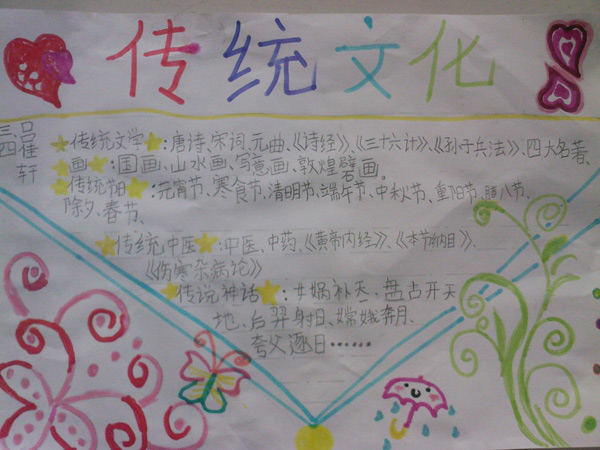 传统文化
三四
吕佳轩
传统文学：唐诗、宋词、元曲、《诗经》、《三十六计》、《孙子兵法》、四大名著、
画：国画、山水画、写意画、敦煌壁画。
传统节日：元宵节、寒食节、清明节、端午节、中秋节、重阳节、腊八节、
除夕、春节、
传统中医：中医、中药、《黄帝内经》、《本草纲目》、
《伤寒杂病论》
传说神话：女娲补天、盘古开天
地、后羿射日、嫦娥奔月、
夸父逐日……